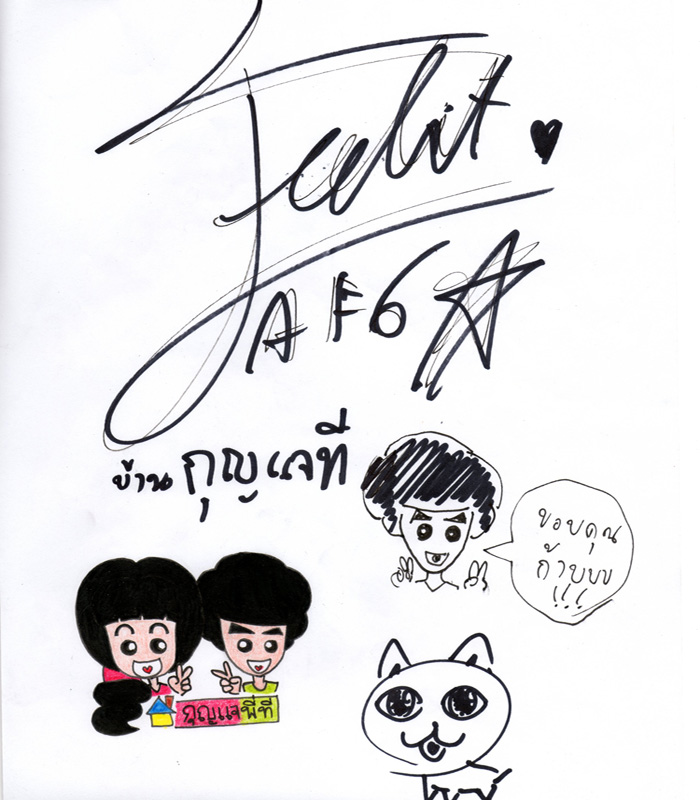 AF6
บ้าน กุญแจที
ขอบคุณ
ก้าบบบ
!!!
กุญแจพี่ที